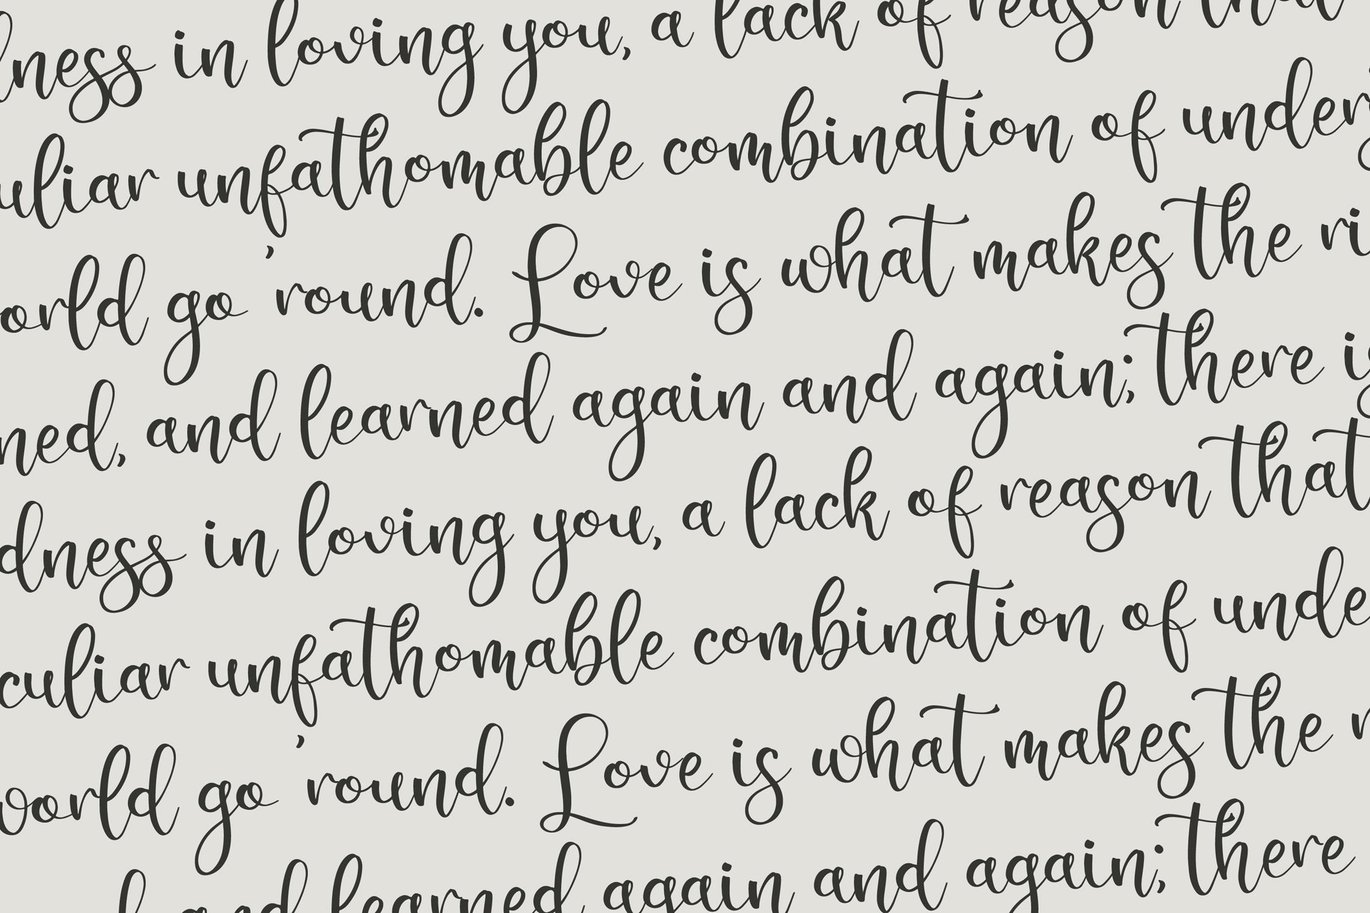 in loving you, a lack of reason that
unfathomable combination of
go 'round. Love is what makes the
and learned again and again; there
in loving you, a lack of reason that
unfathomable combination of
world go 'round. Love is what makes the
and learned again and again; there